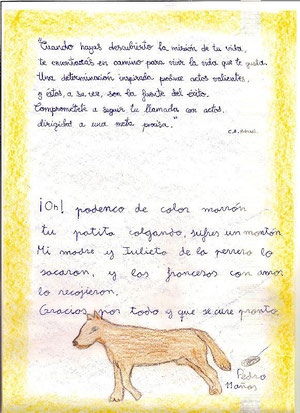 "Cuando hayas descubierto la misión de tu vida,
te encontrarás en camino para vivir la vida que te gusta.
Una determinación inspirada produce actos valientes,
y éstos, a su vez, son la fuente del éxito.
Comprométete a seguir tu llamada con actos,
dirigidos a una meta precisa."
¡Oh! podenco de color marrón
tu patita colgando, sufres un montón
Mi madre y Julieta de la perrera lo
sacaron, y los franceses con amor
lo recogieron.
Gracias por todo y que se cure pronto
Pedro
11 años